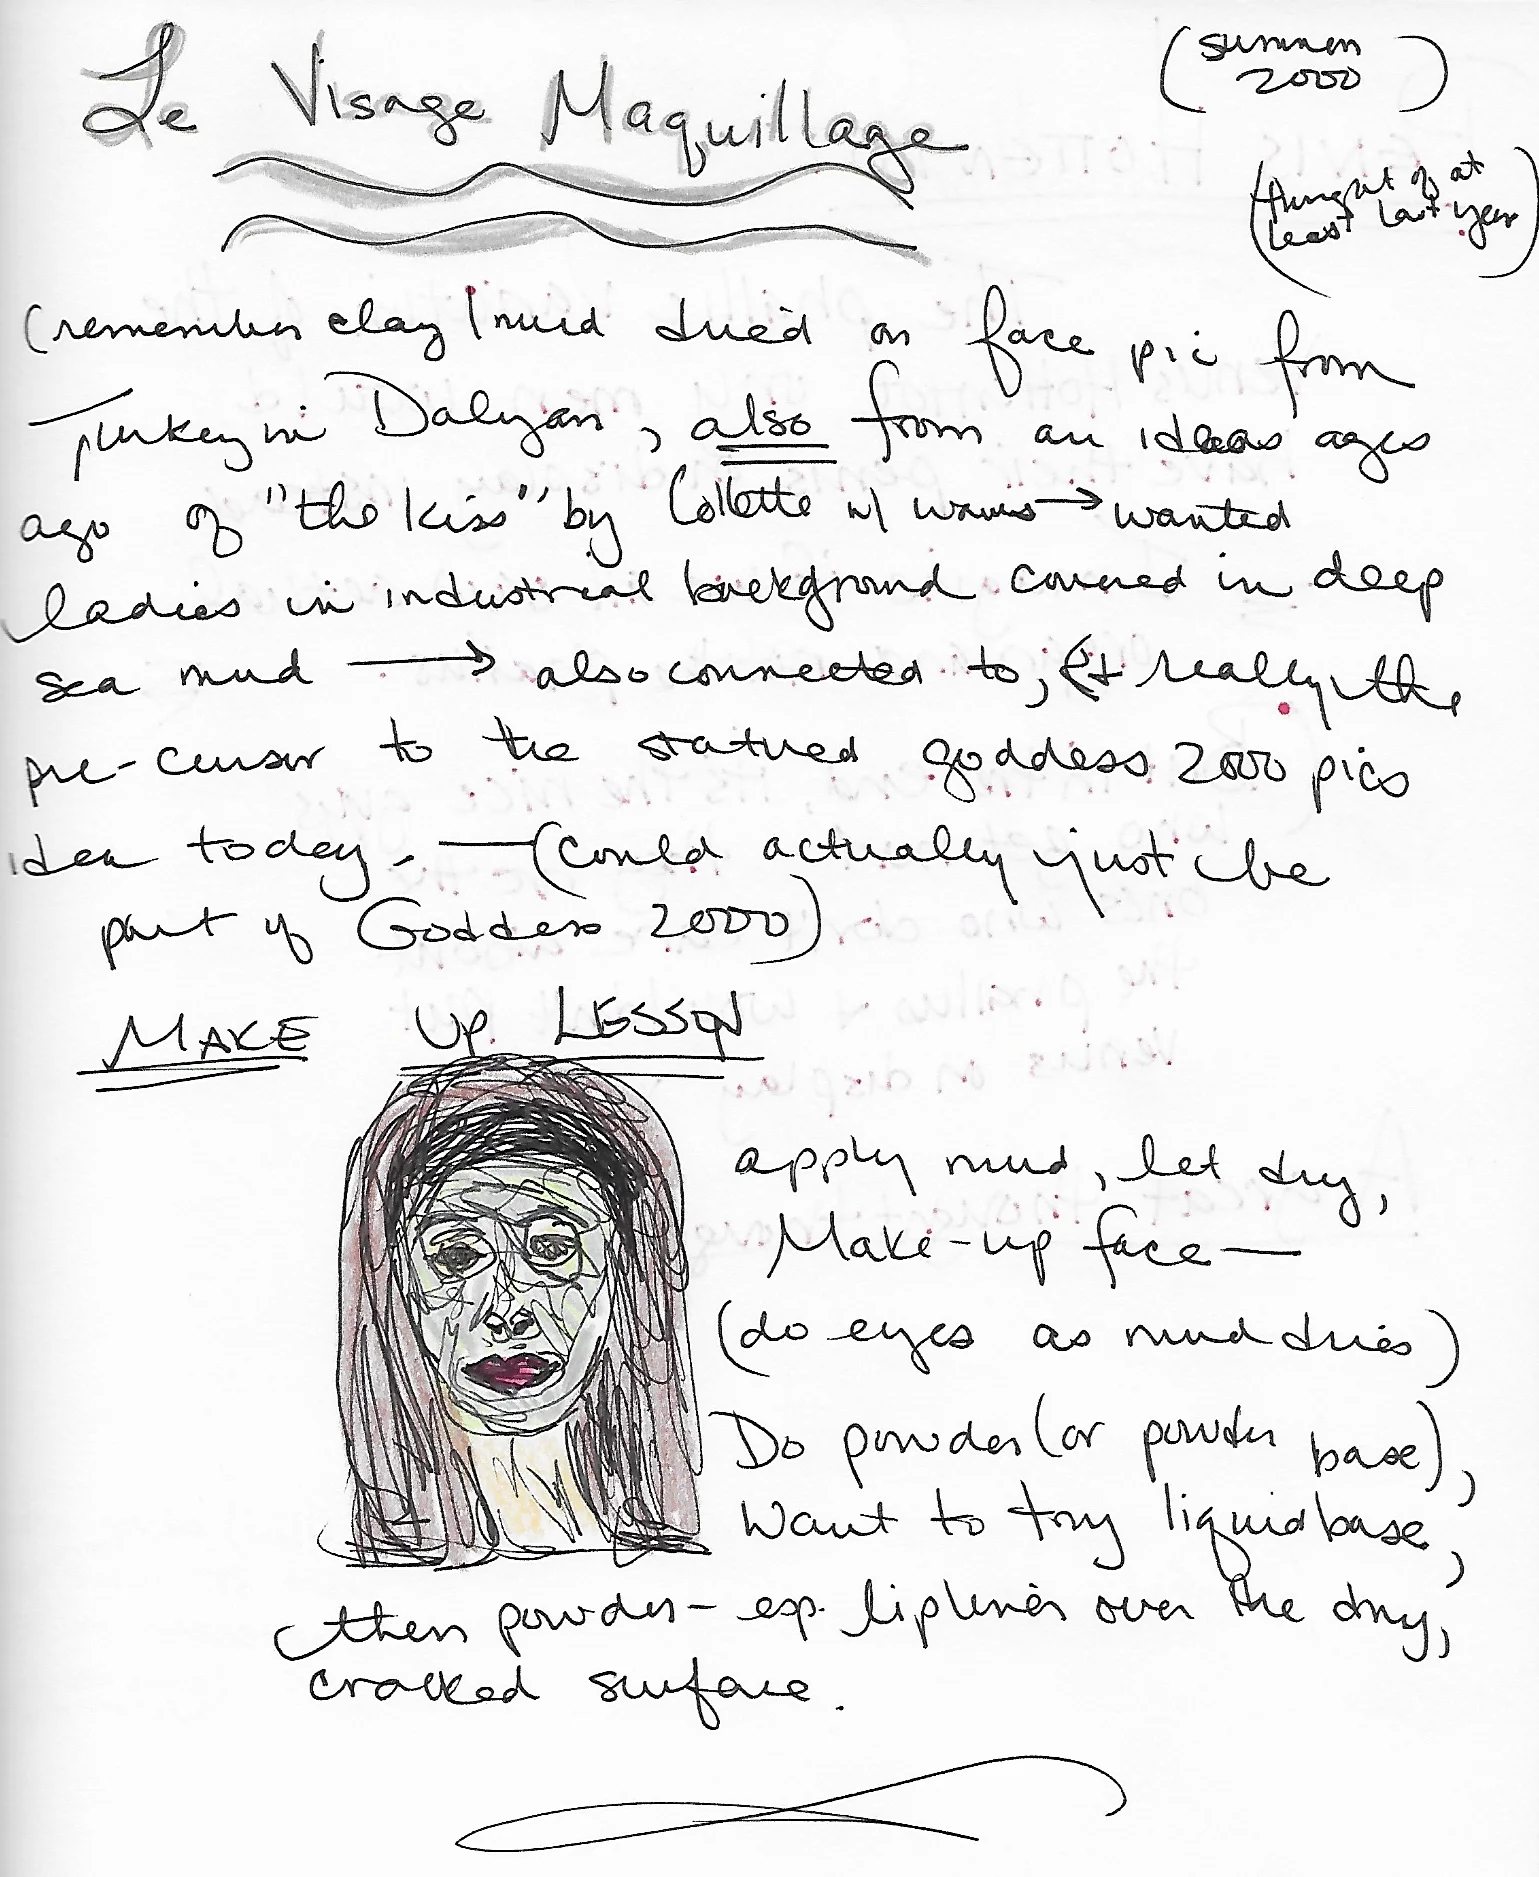 Le Visage Maquillage
(summer
2000)
(thought of at
least last year)
(remember clay/mud dried on face pic from
Turkey in Dalyan, also from an ideas ages
ago of "the kiss" by Collette w/ waves → wanted
ladies in industrial background covered in deep
sea mud → also connected to, & really the
pre-cursor to the statued goddess 2000 pics
idea today. — (could actually just be
part of Goddess 2000)
MAKE UP LESSON
apply mud, let dry,
Make-up face —
(do eyes as mud dries)
Do powder (or powder base),
Want to try liquid base,
then powder - esp. lipliner over the dry,
cracked surface.